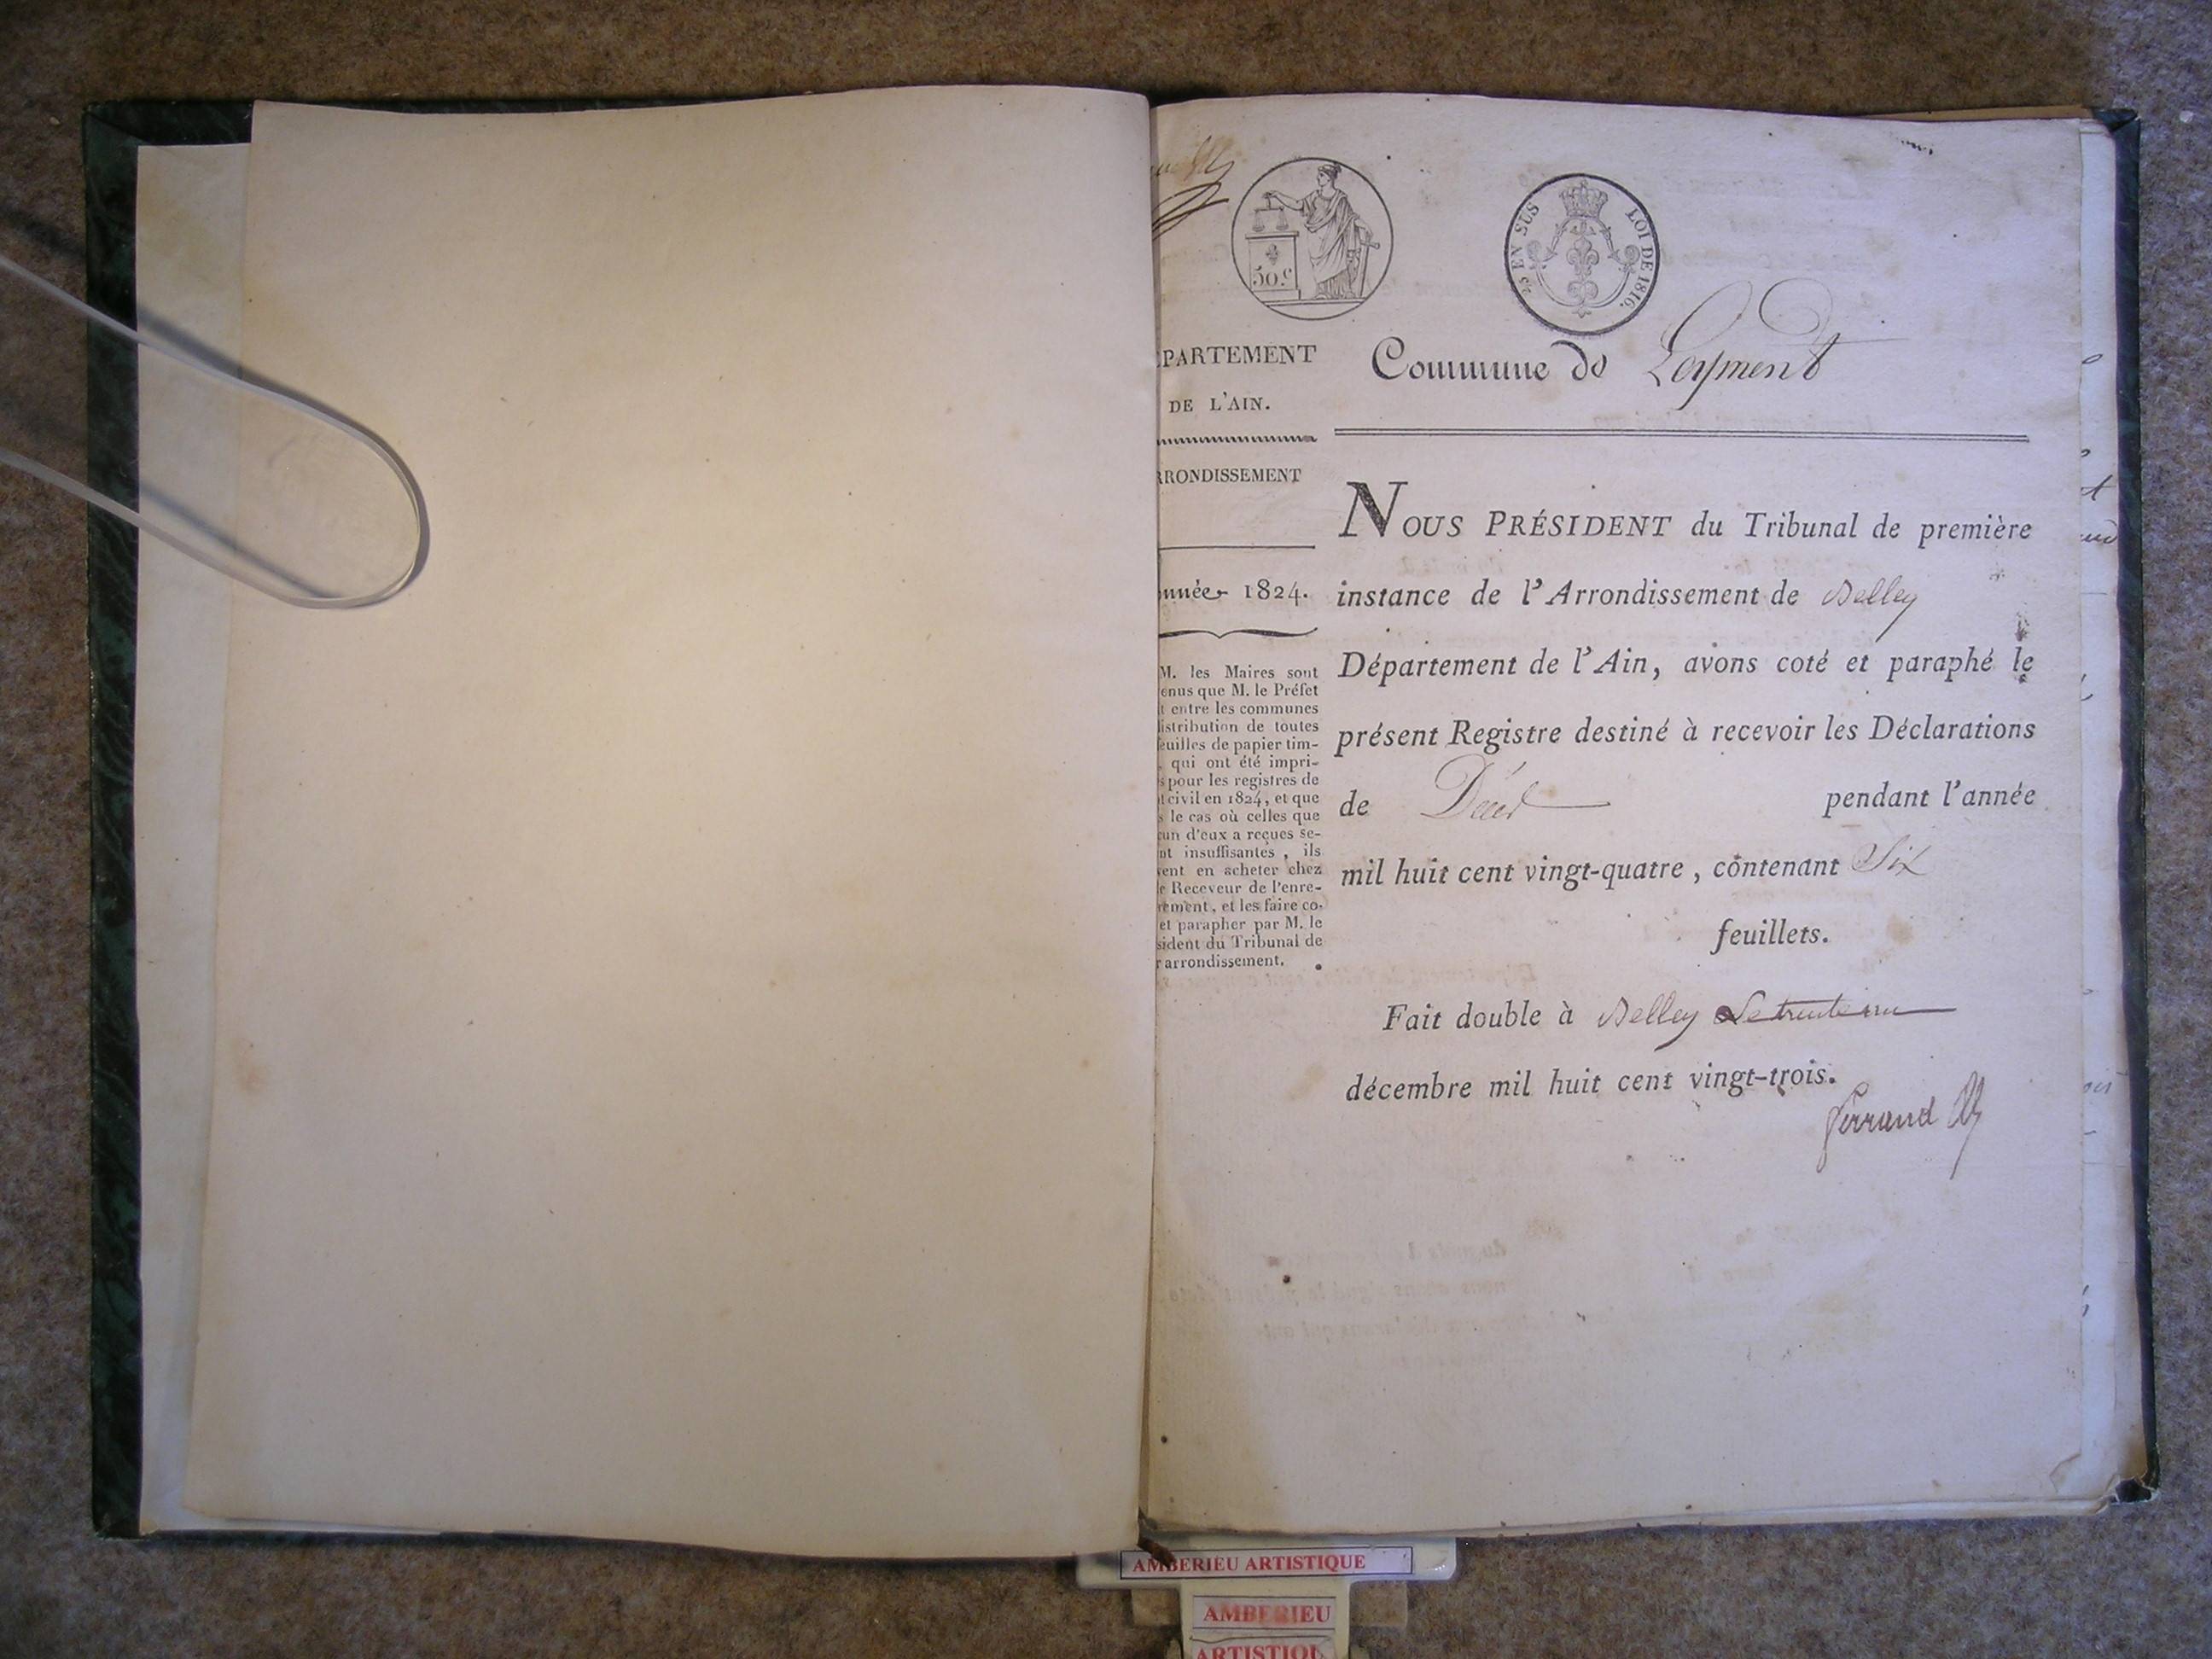 50 c
25 EN SUS LOI DE 1816.
ÉPARTEMENT
DE L'AIN.
RRONDISSEMENT
nnée 1824.
M. les Maires sont
enus que M. le Préfet
t entre les communes
distribution de toutes
feuilles de papier tim-
, qui ont été impri-
s pour les registres de
t civil en 1824, et que
s le cas où celles que
cun d'eux a reçues se-
nt insuffisantes, ils
vent en acheter chez
e Receveur de l'enre-
rement, et les faire co-
et parapher par M. le
sident du Tribunal de
r arrondissement.
Commune de Leyment
NOUS PRÉSIDENT du Tribunal de première
instance de l'Arrondissement de Belley
Département de l'Ain, avons coté et paraphé le
présent Registre destiné à recevoir les Déclarations
de Décès pendant l'année
mil huit cent vingt-quatre, contenant Six
feuillets.
Fait double à Belley Le trente un
décembre mil huit cent vingt-trois.
ferrand
AMBERIEU ARTISTIQUE
AMBERIEU
ARTISTIQU